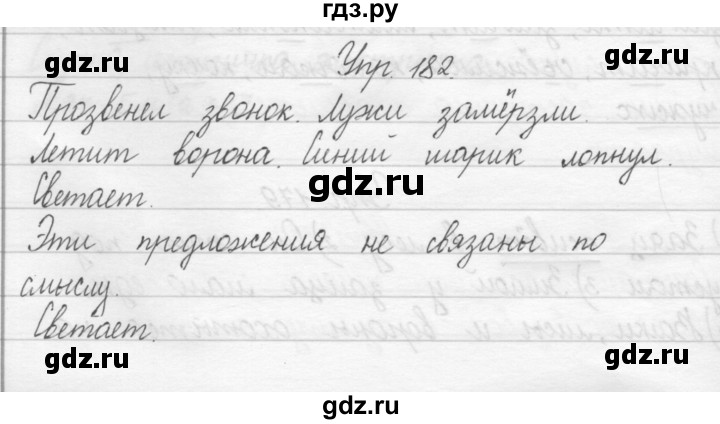 гдз.ру
gdz.ru gdz.ru
Упр 182.
Прозвенел звонок. Лужи замёрзли.
gdz.ru gdz.ru
Летит ворона. Синий шарик лопнул.
gdz.ru
Светает.
Эти предложения не связаны по
gdz.ru gdz.ru
смыслу.
Светает.
gdz.ru gdz.ru
gdz.ru